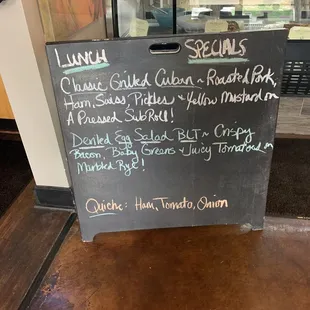 LUNCH SPECIALS
Classic Grilled Cuban ~ Roasted Pork,
Ham, Swiss, Pickles & Yellow Mustard on
A Pressed Sub Roll!
Deviled Egg Salad BLT ~ Crispy
Bacon, Baby Greens & Juicy Tomatoes on
Marbled Rye!
Quiche: Ham, Tomato, Onion